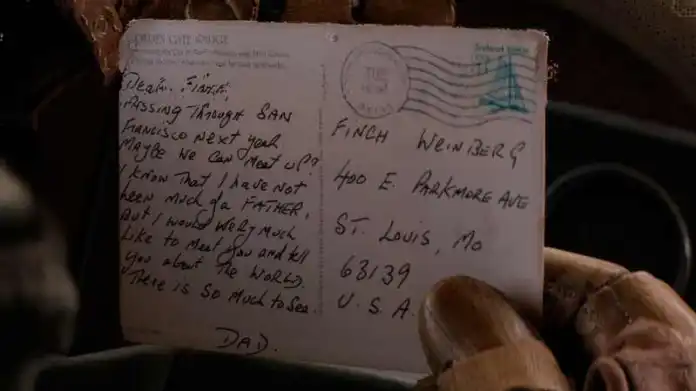 GOLDEN GATE BRIDGE
Dear Finch
PASSING THROUGH SAN
FRANCISCO NEXT YEAR
MAYBE WE CAN MEET UP?
I KNOW THAT I HAVE NOT
BEEN MUCH of a FATHER,
BUT I WOULD VERY MUCH
LIKE TO MEET YOU AND tell
YOU ABOUT THE WORLD.
THERE IS SO MUCH TO SEE.
DAD.
FINCH WEINBERG
400 E. PARKMORE AVE
ST. LOUIS, MO
63139
U.S.A.